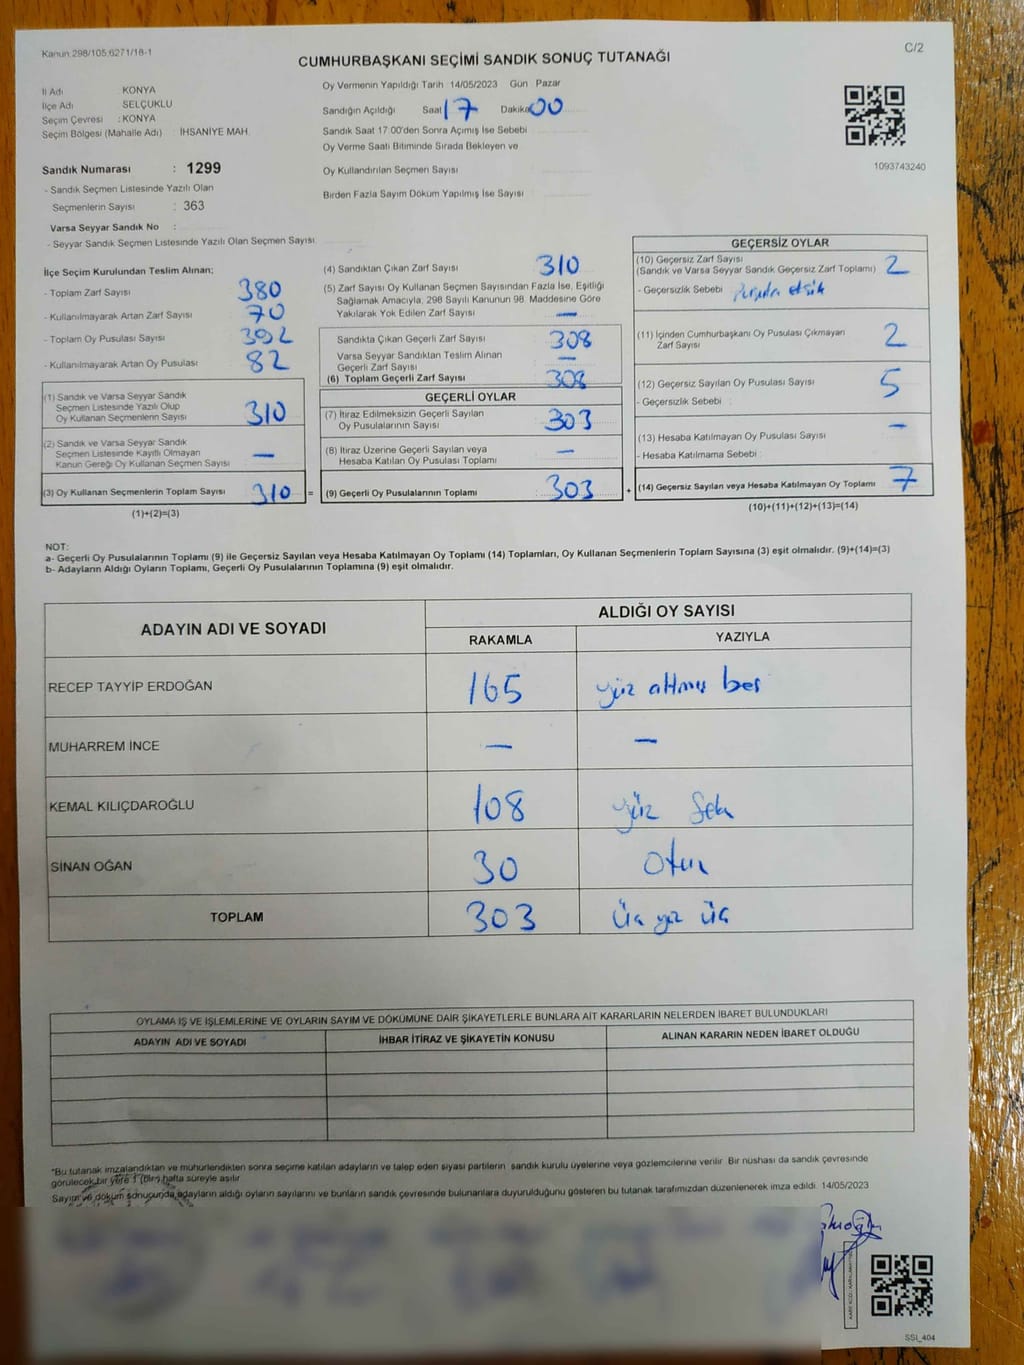 Kanun 298/105,6271/18-1
C/2
CUMHURBAŞKANI SEÇİMİ SANDIK SONUÇ TUTANAĞI
İl Adı KONYA
İlçe Adı SELÇUKLU
Seçim Çevresi : KONYA
Seçim Bölgesi (Mahalle Adı) : İHSANİYE MAH.
Sandık Numarası : 1299
- Sandık Seçmen Listesinde Yazılı Olan
Seçmenlerin Sayısı : 363
Varsa Seyyar Sandık No :
- Seyyar Sandık Seçmen Listesinde Yazılı Olan Seçmen Sayısı:
Oy Vermenin Yapıldığı Tarih : 14/05/2023 Gün Pazar
Sandığın Açıldığı Saat 17 Dakika 00
Sandık Saat 17.00'den Sonra Açımış İse Sebebi
Oy Verme Saati Bitiminde Sırada Bekleyen ve
Oy Kullandırılan Seçmen Sayısı
Birden Fazla Sayım Döküm Yapılmış İse Sayısı
1093743240
İlçe Seçim Kurulundan Teslim Alınan:
- Toplam Zarf Sayısı 380
- Kullanılmayarak Artan Zarf Sayısı 70
- Toplam Oy Pusulası Sayısı 392
- Kullanılmayarak Artan Oy Pusulası 82
(1) Sandık ve Varsa Seyyar Sandık
Seçmen Listesinde Yazılı Olup
Oy Kullanan Seçmenlerin Sayısı 310
(2) Sandık ve Varsa Seyyar Sandık
Seçmen Listesinde Kayıtlı Olmayan
Kanun Gereği Oy Kullanan Seçmen Sayısı —
(3) Oy Kullanan Seçmenlerin Toplam Sayısı 310 =
(1)+(2)=(3)
(4) Sandıktan Çıkan Zarf Sayısı 310
(5) Zarf Sayısı Oy Kullanan Seçmen Sayısından Fazla İse, Eşitliği
Sağlamak Amacıyla, 298 Sayılı Kanunun 98. Maddesine Göre
Yakılarak Yok Edilen Zarf Sayısı —
Sandıkta Çıkan Geçerli Zarf Sayısı 308
Varsa Seyyar Sandıktan Teslim Alınan
Geçerli Zarf Sayısı —
(6) Toplam Geçerli Zarf Sayısı 308
GEÇERLİ OYLAR
(7) İtiraz Edilmeksizin Geçerli Sayılan
Oy Pusulalarının Sayısı 303
(8) İtiraz Üzerine Geçerli Sayılan veya
Hesaba Katılan Oy Pusulası Toplamı —
(9) Geçerli Oy Pusulalarının Toplamı 303 +
GEÇERSİZ OYLAR
(10) Geçersiz Zarf Sayısı
(Sandık ve Varsa Seyyar Sandık Geçersiz Zarf Toplamı) 2
- Geçersizlik Sebebi
(11) İçinden Cumhurbaşkanı Oy Pusulası Çıkmayan
Zarf Sayısı 2
(12) Geçersiz Sayılan Oy Pusulası Sayısı 5
- Geçersizlik Sebebi :
(13) Hesaba Katılmayan Oy Pusulası Sayısı —
- Hesaba Katılmama Sebebi :
(14) Geçersiz Sayılan veya Hesaba Katılmayan Oy Toplamı 7
(10)+(11)+(12)+(13)=(14)
NOT:
a- Geçerli Oy Pusulalarının Toplamı (9) ile Geçersiz Sayılan veya Hesaba Katılmayan Oy Toplamı (14) Toplamları, Oy Kullanan Seçmenlerin Toplam Sayısına (3) eşit olmalıdır. (9)+(14)=(3)
b- Adayların Aldığı Oyların Toplamı, Geçerli Oy Pusulalarının Toplamına (9) eşit olmalıdır.
ADAYIN ADI VE SOYADI ALDIĞI OY SAYISI
RAKAMLA YAZIYLA
RECEP TAYYİP ERDOĞAN 165 yüz altmış beş
MUHARREM İNCE — —
KEMAL KILIÇDAROĞLU 108 yüz sekiz
SİNAN OĞAN 30 Otuz
TOPLAM 303 Üç yüz üç
OYLAMA İŞ VE İŞLEMLERİNE VE OYLARIN SAYIM VE DÖKÜMÜNE DAİR ŞİKAYETLERLE BUNLARA AİT KARARLARIN NELERDEN İBARET BULUNDUKLARI
ADAYIN ADI VE SOYADI İHBAR İTİRAZ VE ŞİKAYETİN KONUSU ALINAN KARARIN NEDEN İBARET OLDUĞU
*Bu tutanak imzalandıktan ve mühürlendikten sonra seçime katılan adayların ve talep eden siyasi partilerin sandık kurulu üyelerine veya gözlemcilerine verilir. Bir nüshası da sandık çevresinde
görülecek bir yere 1 (Bir) hafta süreyle asılır.
Sayım ve döküm sonucunda adayların aldığı oyların sayılarını ve bunların sandık çevresinde bulunanlara duyurulduğunu gösteren bu tutanak tarafımızdan düzenlenerek imza edildi. 14/05/2023
SSI_404